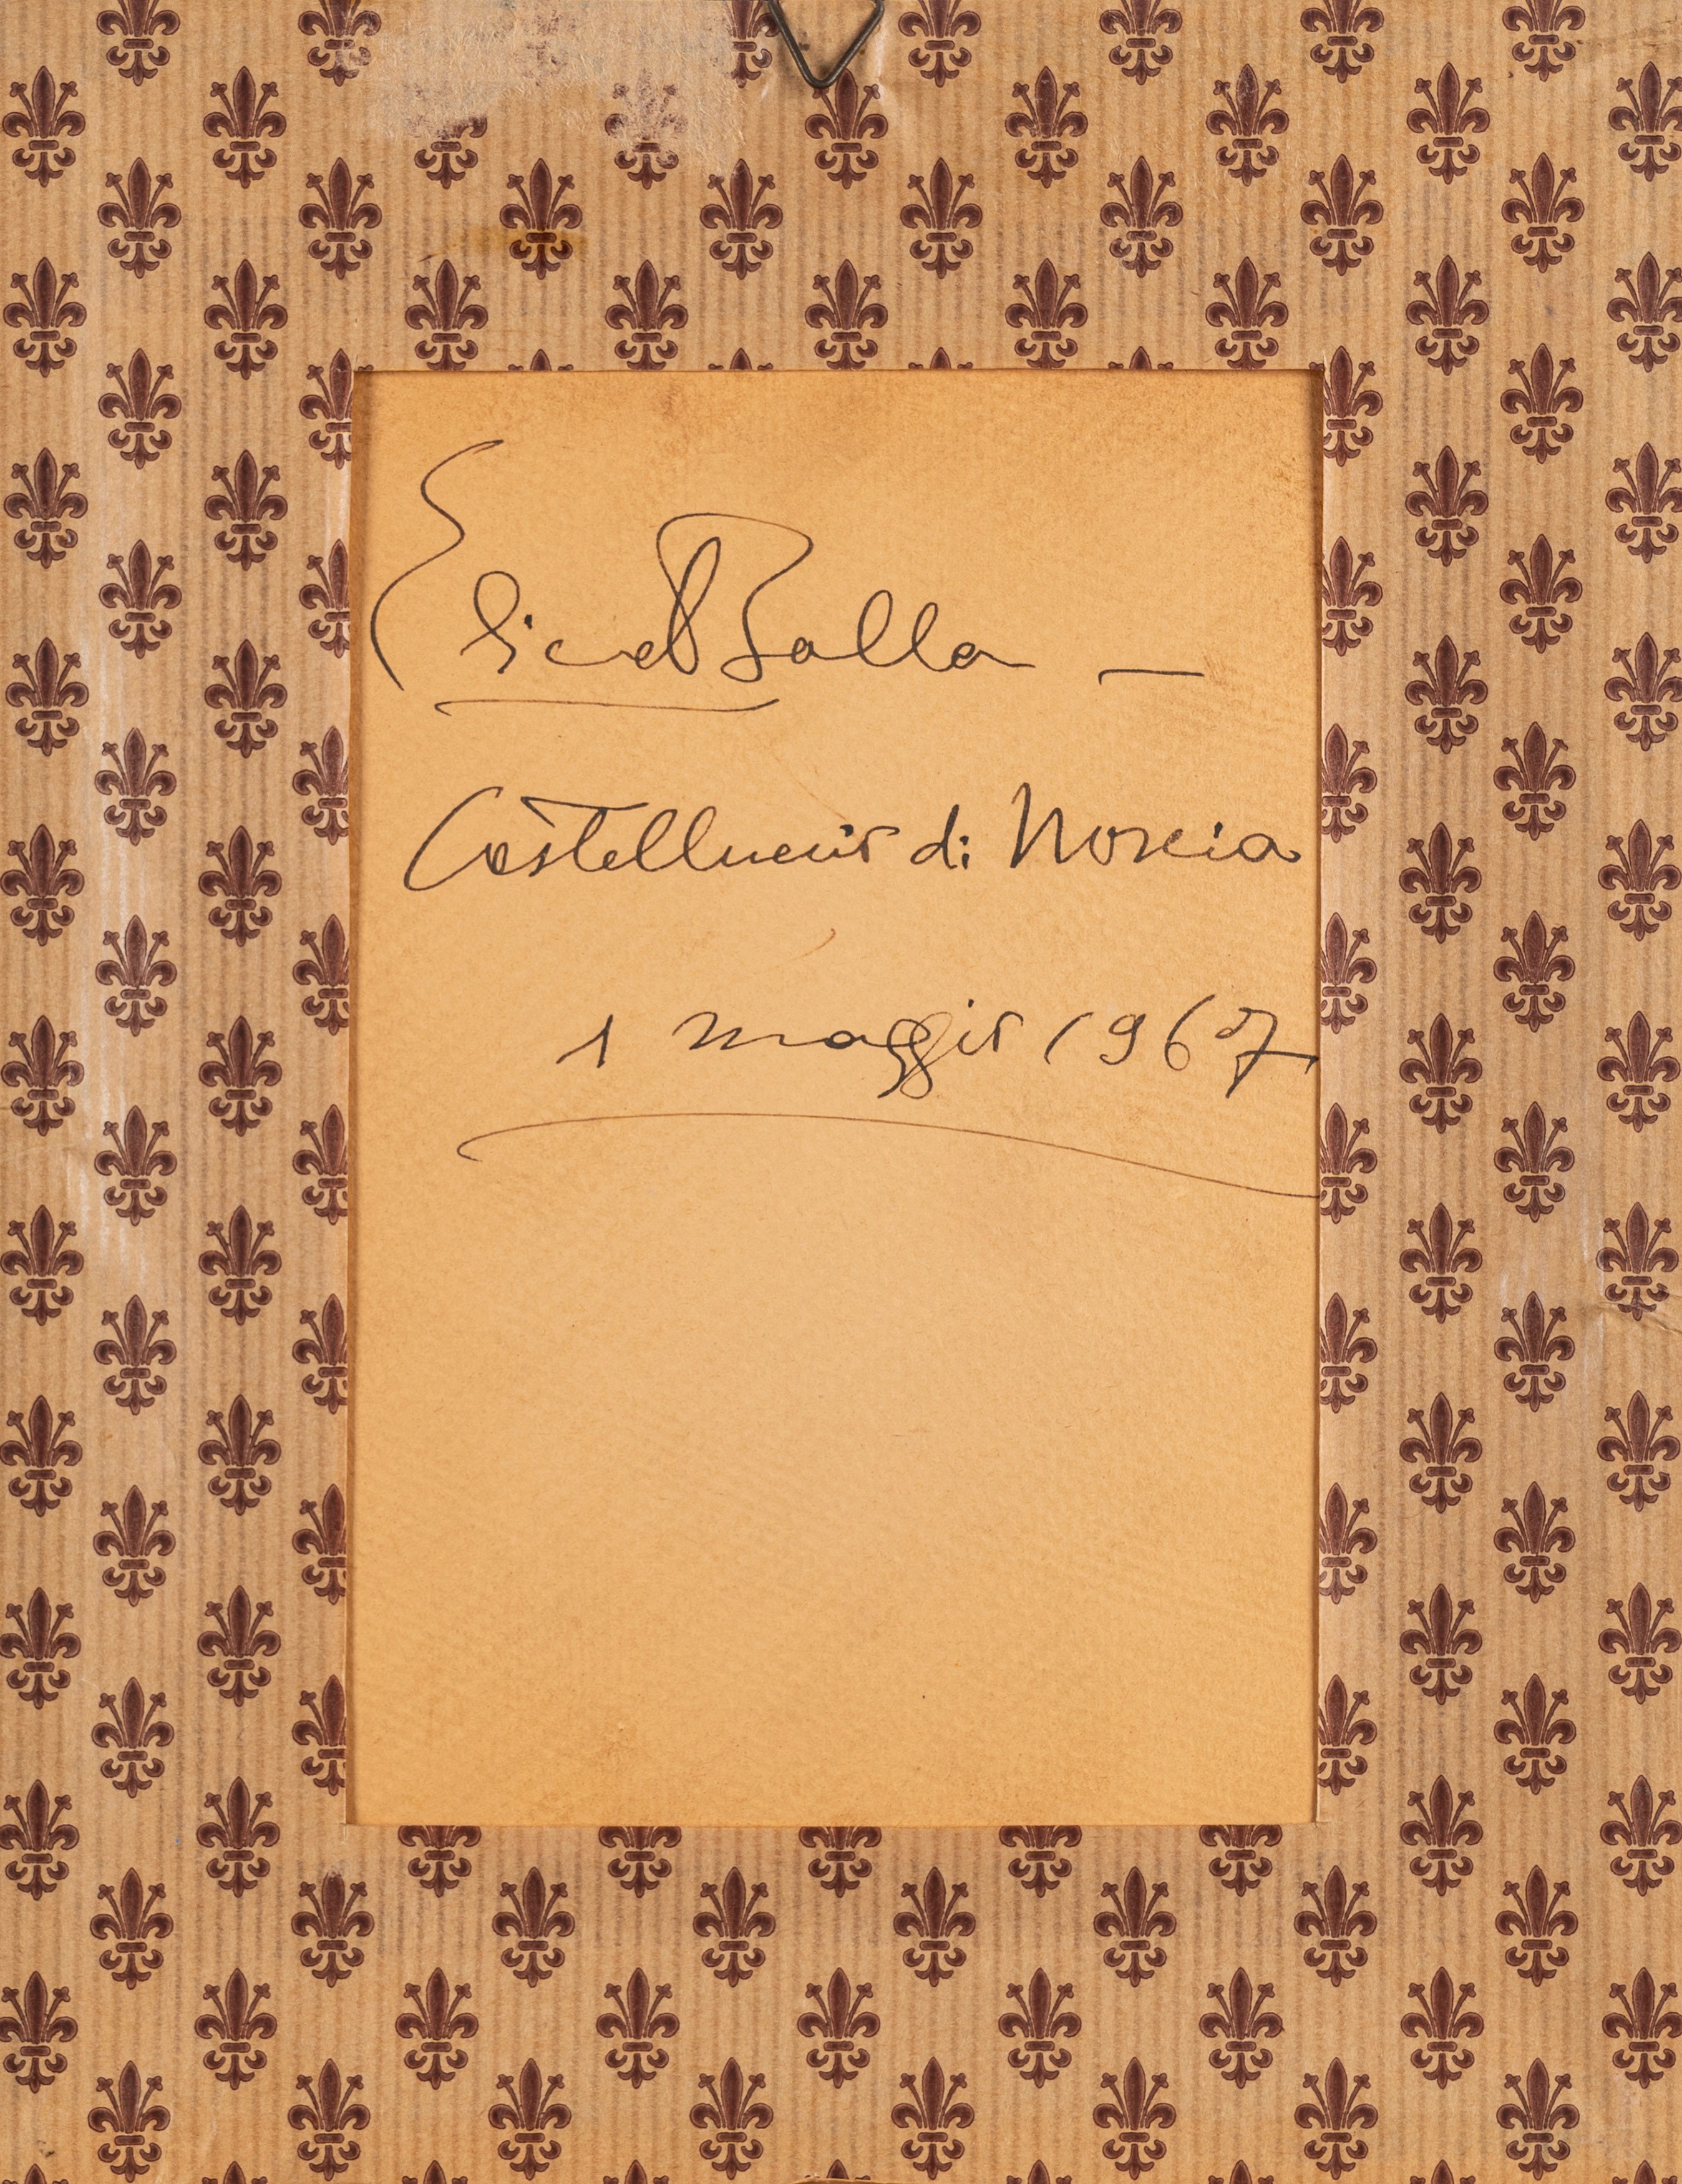 Elica Balla —
Castelluccio di Norcia
1 maggio 1967